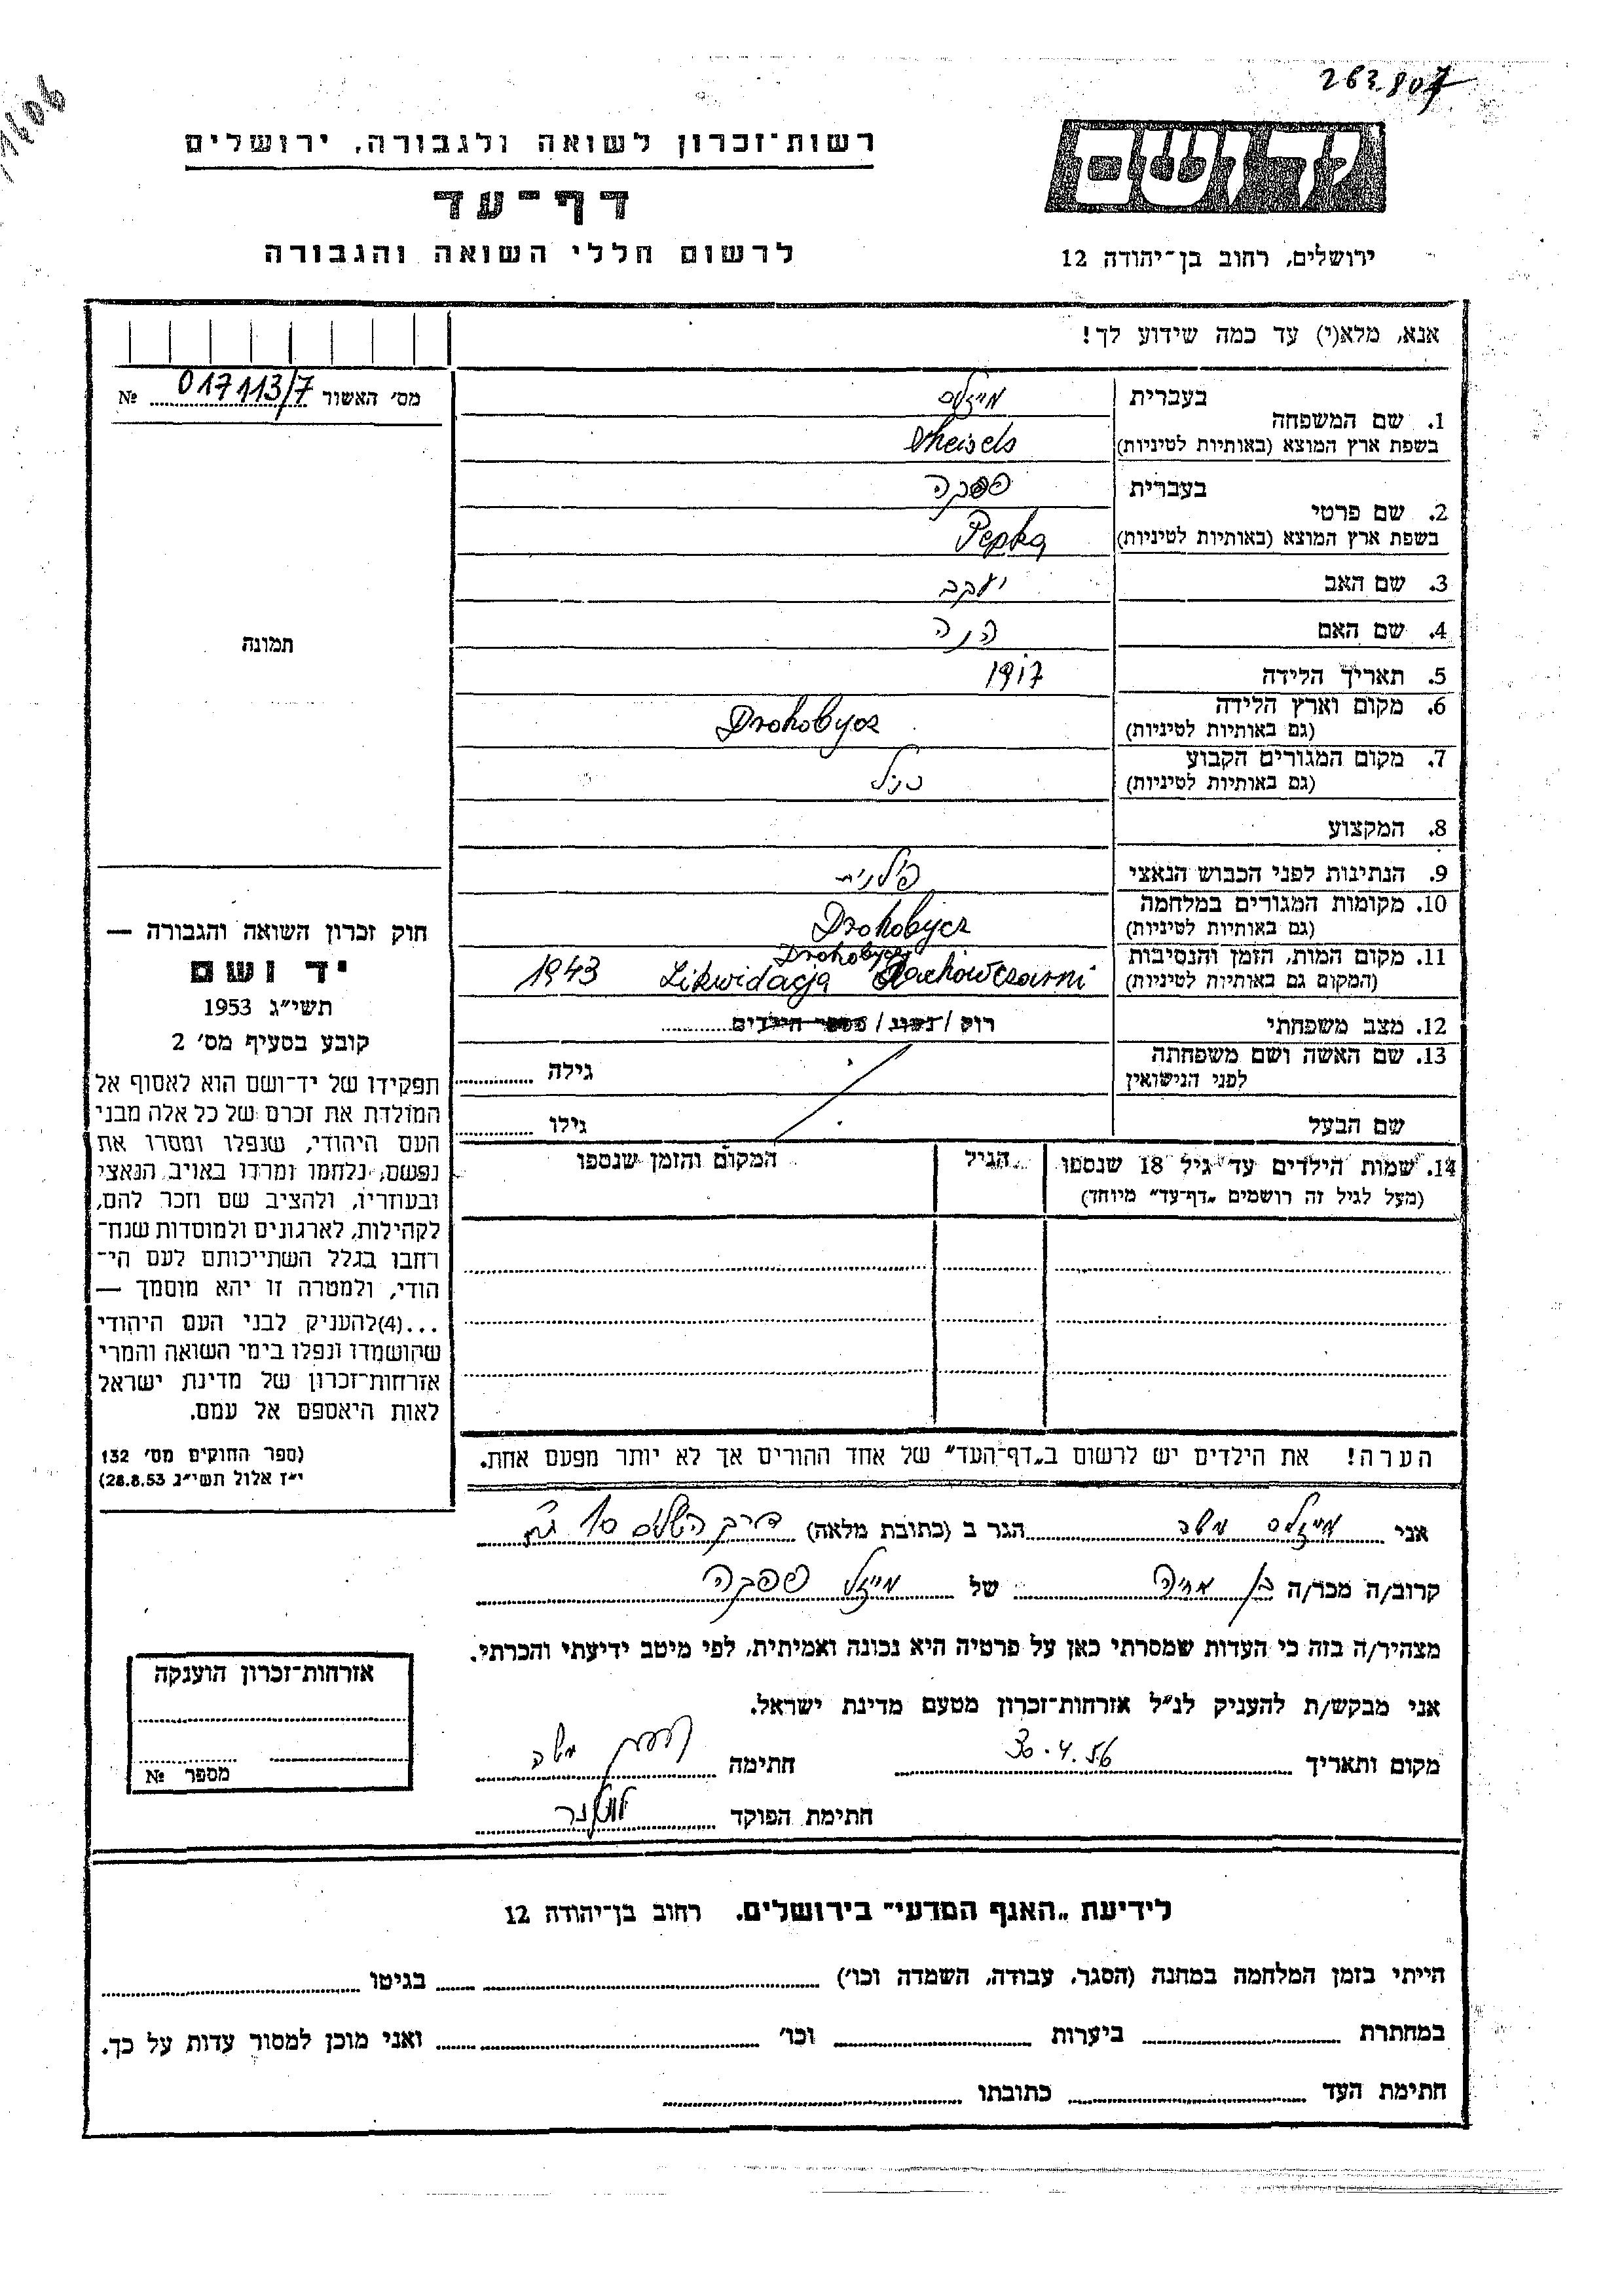 263807
רשות־זכרון לשואה ולגבורה, ירושלים
יד ושם
דף־עד
לרשום חללי השואה והגבורה
ירושלים, רחוב בן־יהודה 12
אנא, מלא(י) עד כמה שידוע לך!
מס׳ האשור 017113/7 №
1. שם המשפחה
בעברית מייזלס
בשפת ארץ המוצא (באותיות לטיניות) Meisels
2. שם פרטי
בעברית
בשפת ארץ המוצא (באותיות לטיניות) Pepka
3. שם האב יעקב
4. שם האם חנה
5. תאריך הלידה 1917
6. מקום וארץ הלידה
(גם באותיות לטיניות) Drohobycz
7. מקום המגורים הקבוע
(גם באותיות לטיניות) כנ״ל
8. המקצוע
9. הנתינות לפני הכבוש הנאצי פולנית
10. מקומות המגורים במלחמה
(גם באותיות לטיניות) Drohobycz
11. מקום המות, הזמן והנסיבות
(המקום גם באותיות לטיניות) Drohobycz
1943 Likwidacja Dachówczarni
12. מצב משפחתי רוק / נשוי / מספר הילדים
13. שם האשה ושם משפחתה
לפני הנישואין
גילה
שם הבעל
גילו
14. שמות הילדים עד גיל 18 שנספו
(מעל לגיל זה רושמים „דף־עד״ מיוחד)
הגיל
המקום והזמן שנספו
תמונה
חוק זכרון השואה והגבורה —
יד ושם
תשי״ג 1953
קובע בסעיף מס׳ 2
תפקידו של יד־ושם הוא לאסוף אל
המולדת את זכרם של כל אלה מבני
העם היהודי, שנפלו ומסרו את
נפשם, נלחמו ומרדו באויב הנאצי
ובעוזריו, ולהציב שם וזכר להם,
לקהילות, לארגונים ולמוסדות שנח־
רחבו בגלל השתייכותם לעם הי־
הודי, ולמטרה זו יהא מוסמך —
...(4)להעניק לבני העם היהודי
שהושמדו ונפלו בימי השואה והמרי
אזרחות־זכרון של מדינת ישראל
לאות היאספם אל עמם.
(ספר החוקים מס׳ 132
י״ז אלול תשי״ג 28.8.53)
הערה! את הילדים יש לרשום ב„דף־העד״ של אחד ההורים אך לא יותר מפעם אחת.
אני מייזלס משה הגר ב (כתובת מלאה) דרך השלום 10 ת״א
קרוב/ה מכר/ה בן אחיה של מייזלס
מצהיר/ה בזה כי העדות שמסרתי כאן על פרטיה היא נכונה ואמיתית, לפי מיטב ידיעתי והכרתי.
אני מבקש/ת להעניק לנ״ל אזרחות־זכרון מטעם מדינת ישראל.
מקום ותאריך 30.4.56 חתימה משה
חתימת הפוקד
אזרחות־זכרון הוענקה
מספר №
לידיעת „האגף המדעי״ בירושלים. רחוב בן־יהודה 12
הייתי בזמן המלחמה במחנה (הסגר, עבודה, השמדה וכו׳) בגיטו
במחתרת ביערות וכו׳ ואני מוכן למסור עדות על כך.
חתימת העד כתובתו